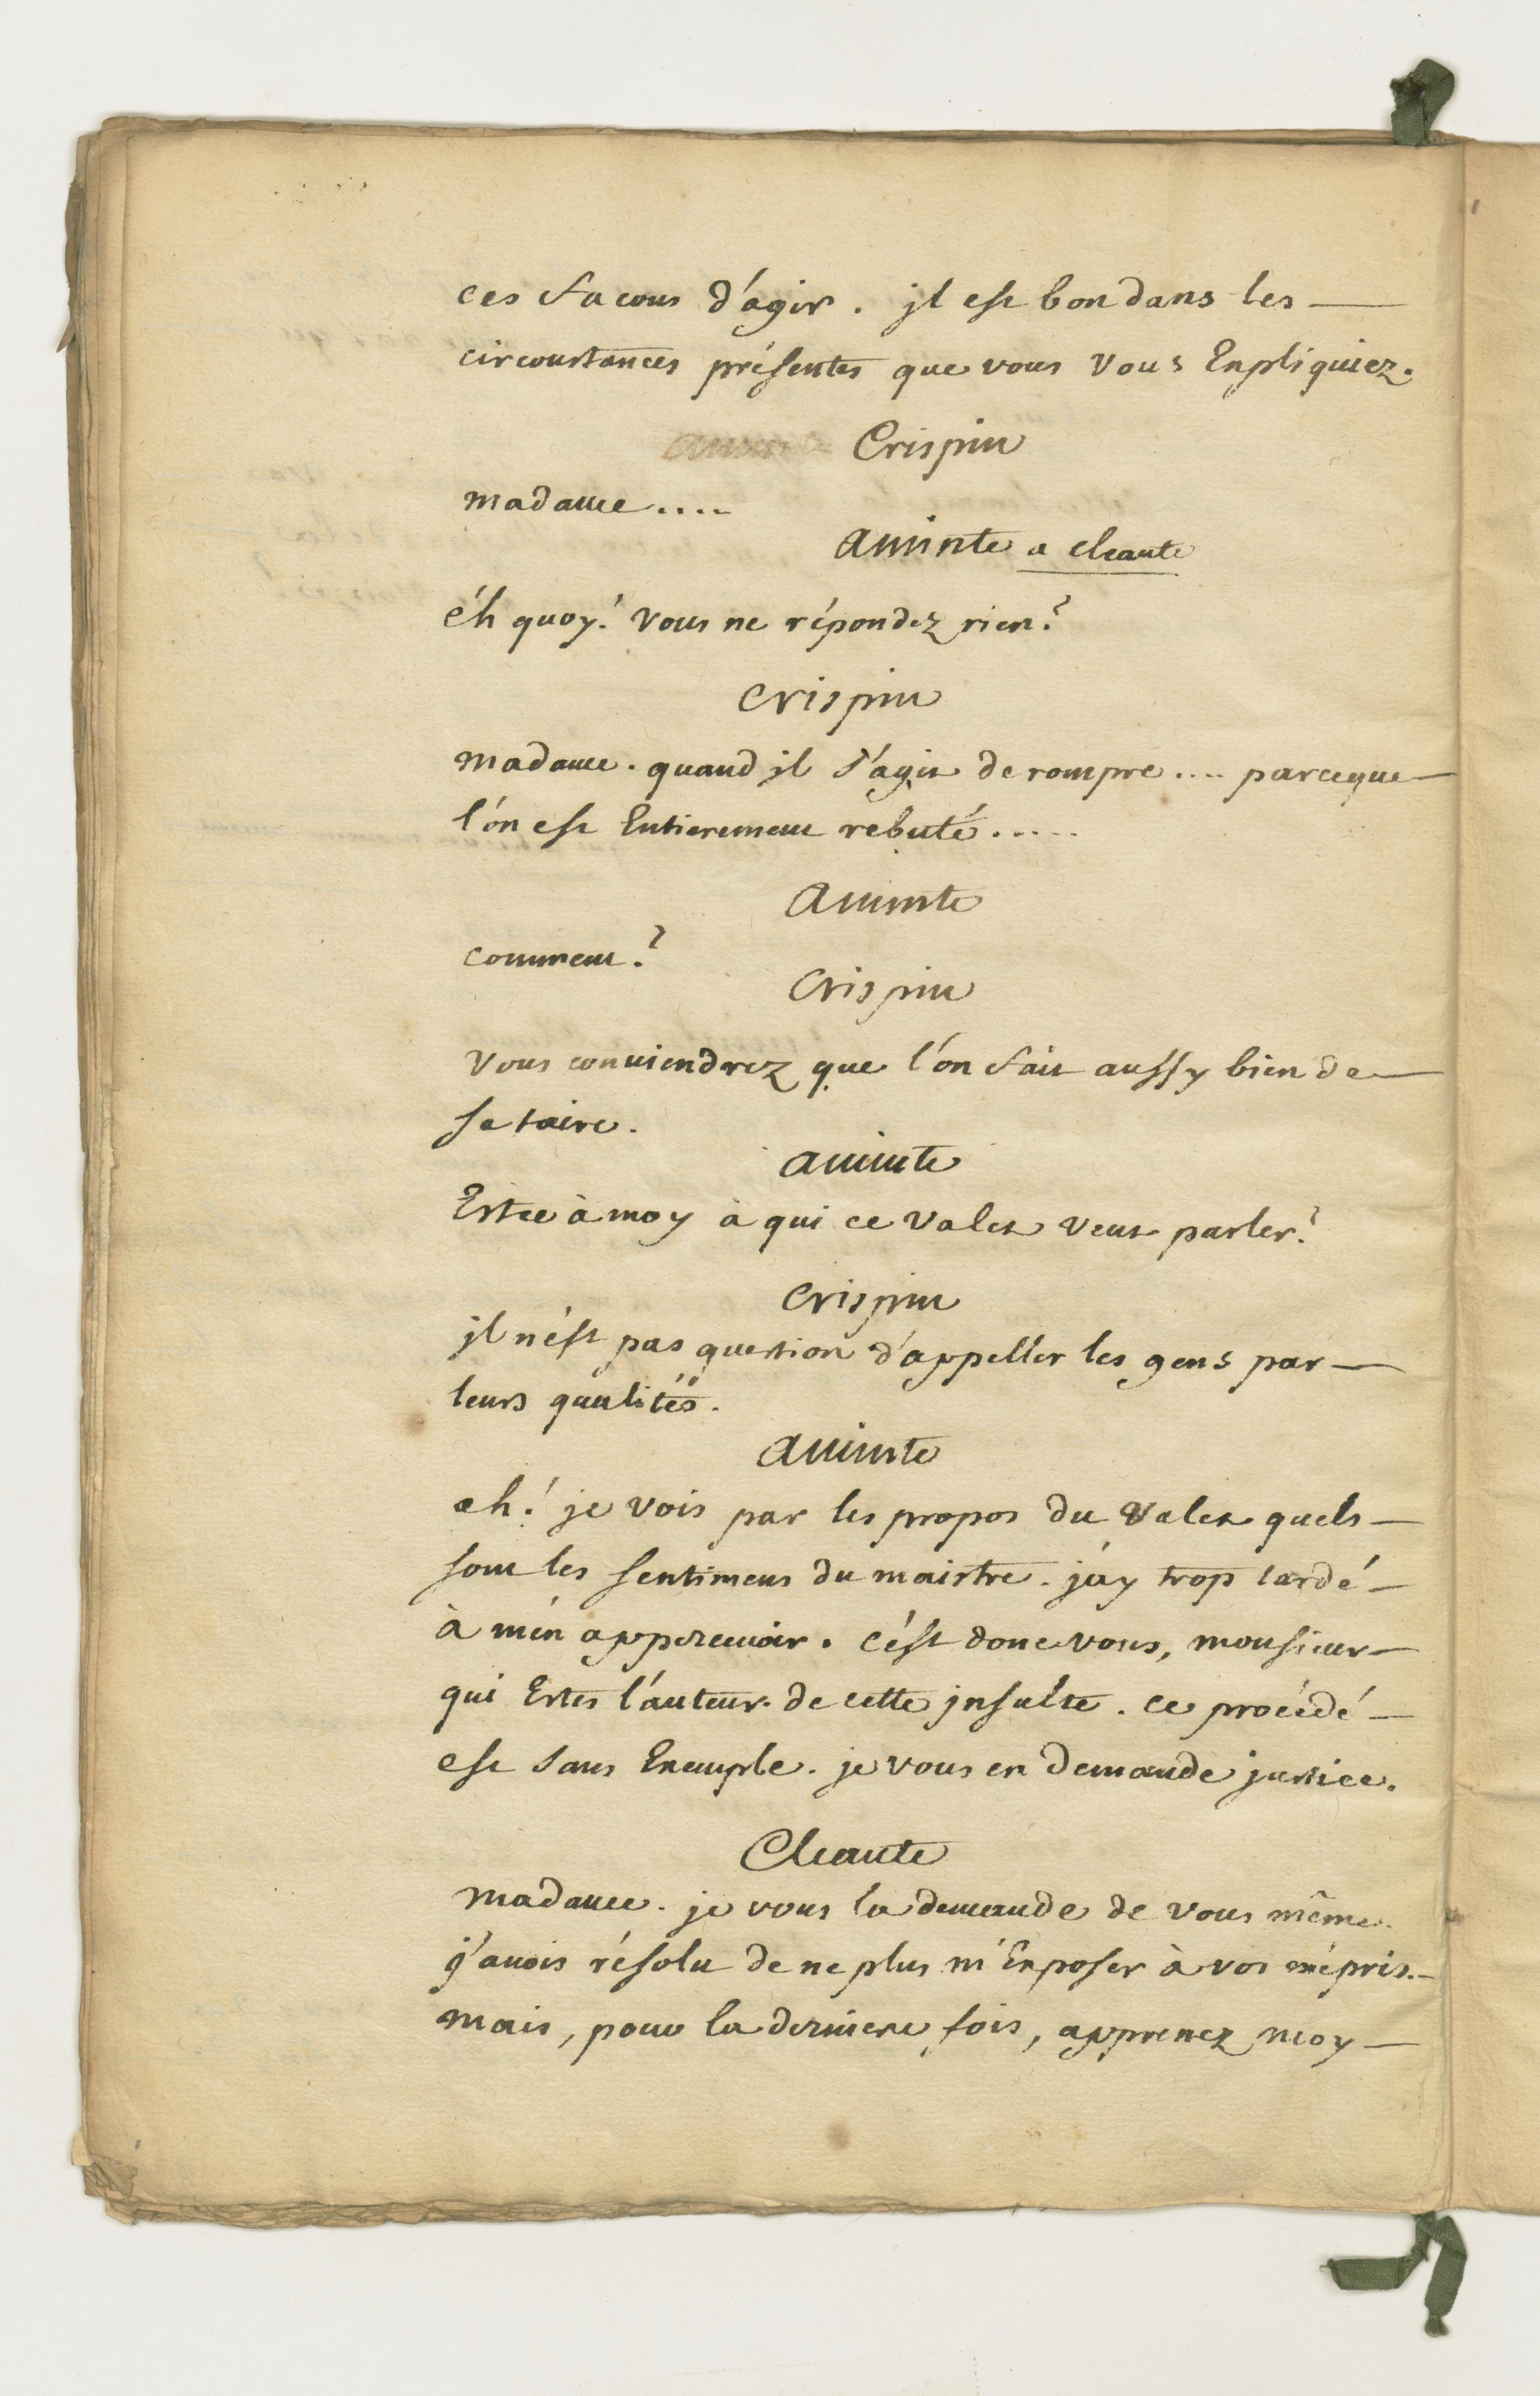 ces facons d'agir. jl est bon dans les —
circonstances présentes que vous Vous Expliquiez.
Crispin
madame....
aminte a cleante
éh quoy! Vous ne répondez rien?
crispin
madame. quand jl s'agit de rompre.... parceque —
l'on est Entierement rebuté.....
Aminte
comment?
Crispin
Vous conviendrez que l'on fait aussy bien de —
se taire.
aminte
Estce à moy à qui ce Valet veut parler?
Crispin
jl n'est pas question d'appeller les gens par —
leurs qualités.
aminte
ah! je vois par les propos du Valet quels —
sont les sentimens du maistre. j'ay trop tardé —
à m'en appercevoir. c'est donc vous, monsieur —
qui Estes l'auteur de cette jnsulte. ce procédé —
est sans Exemple. je vous en demande justice.
Cleante
madame. je vous la demande de vous même.
j'avois résolu de ne plus m'Exposer à vos mépris. —
mais, pour la derniere fois, apprenez moy —